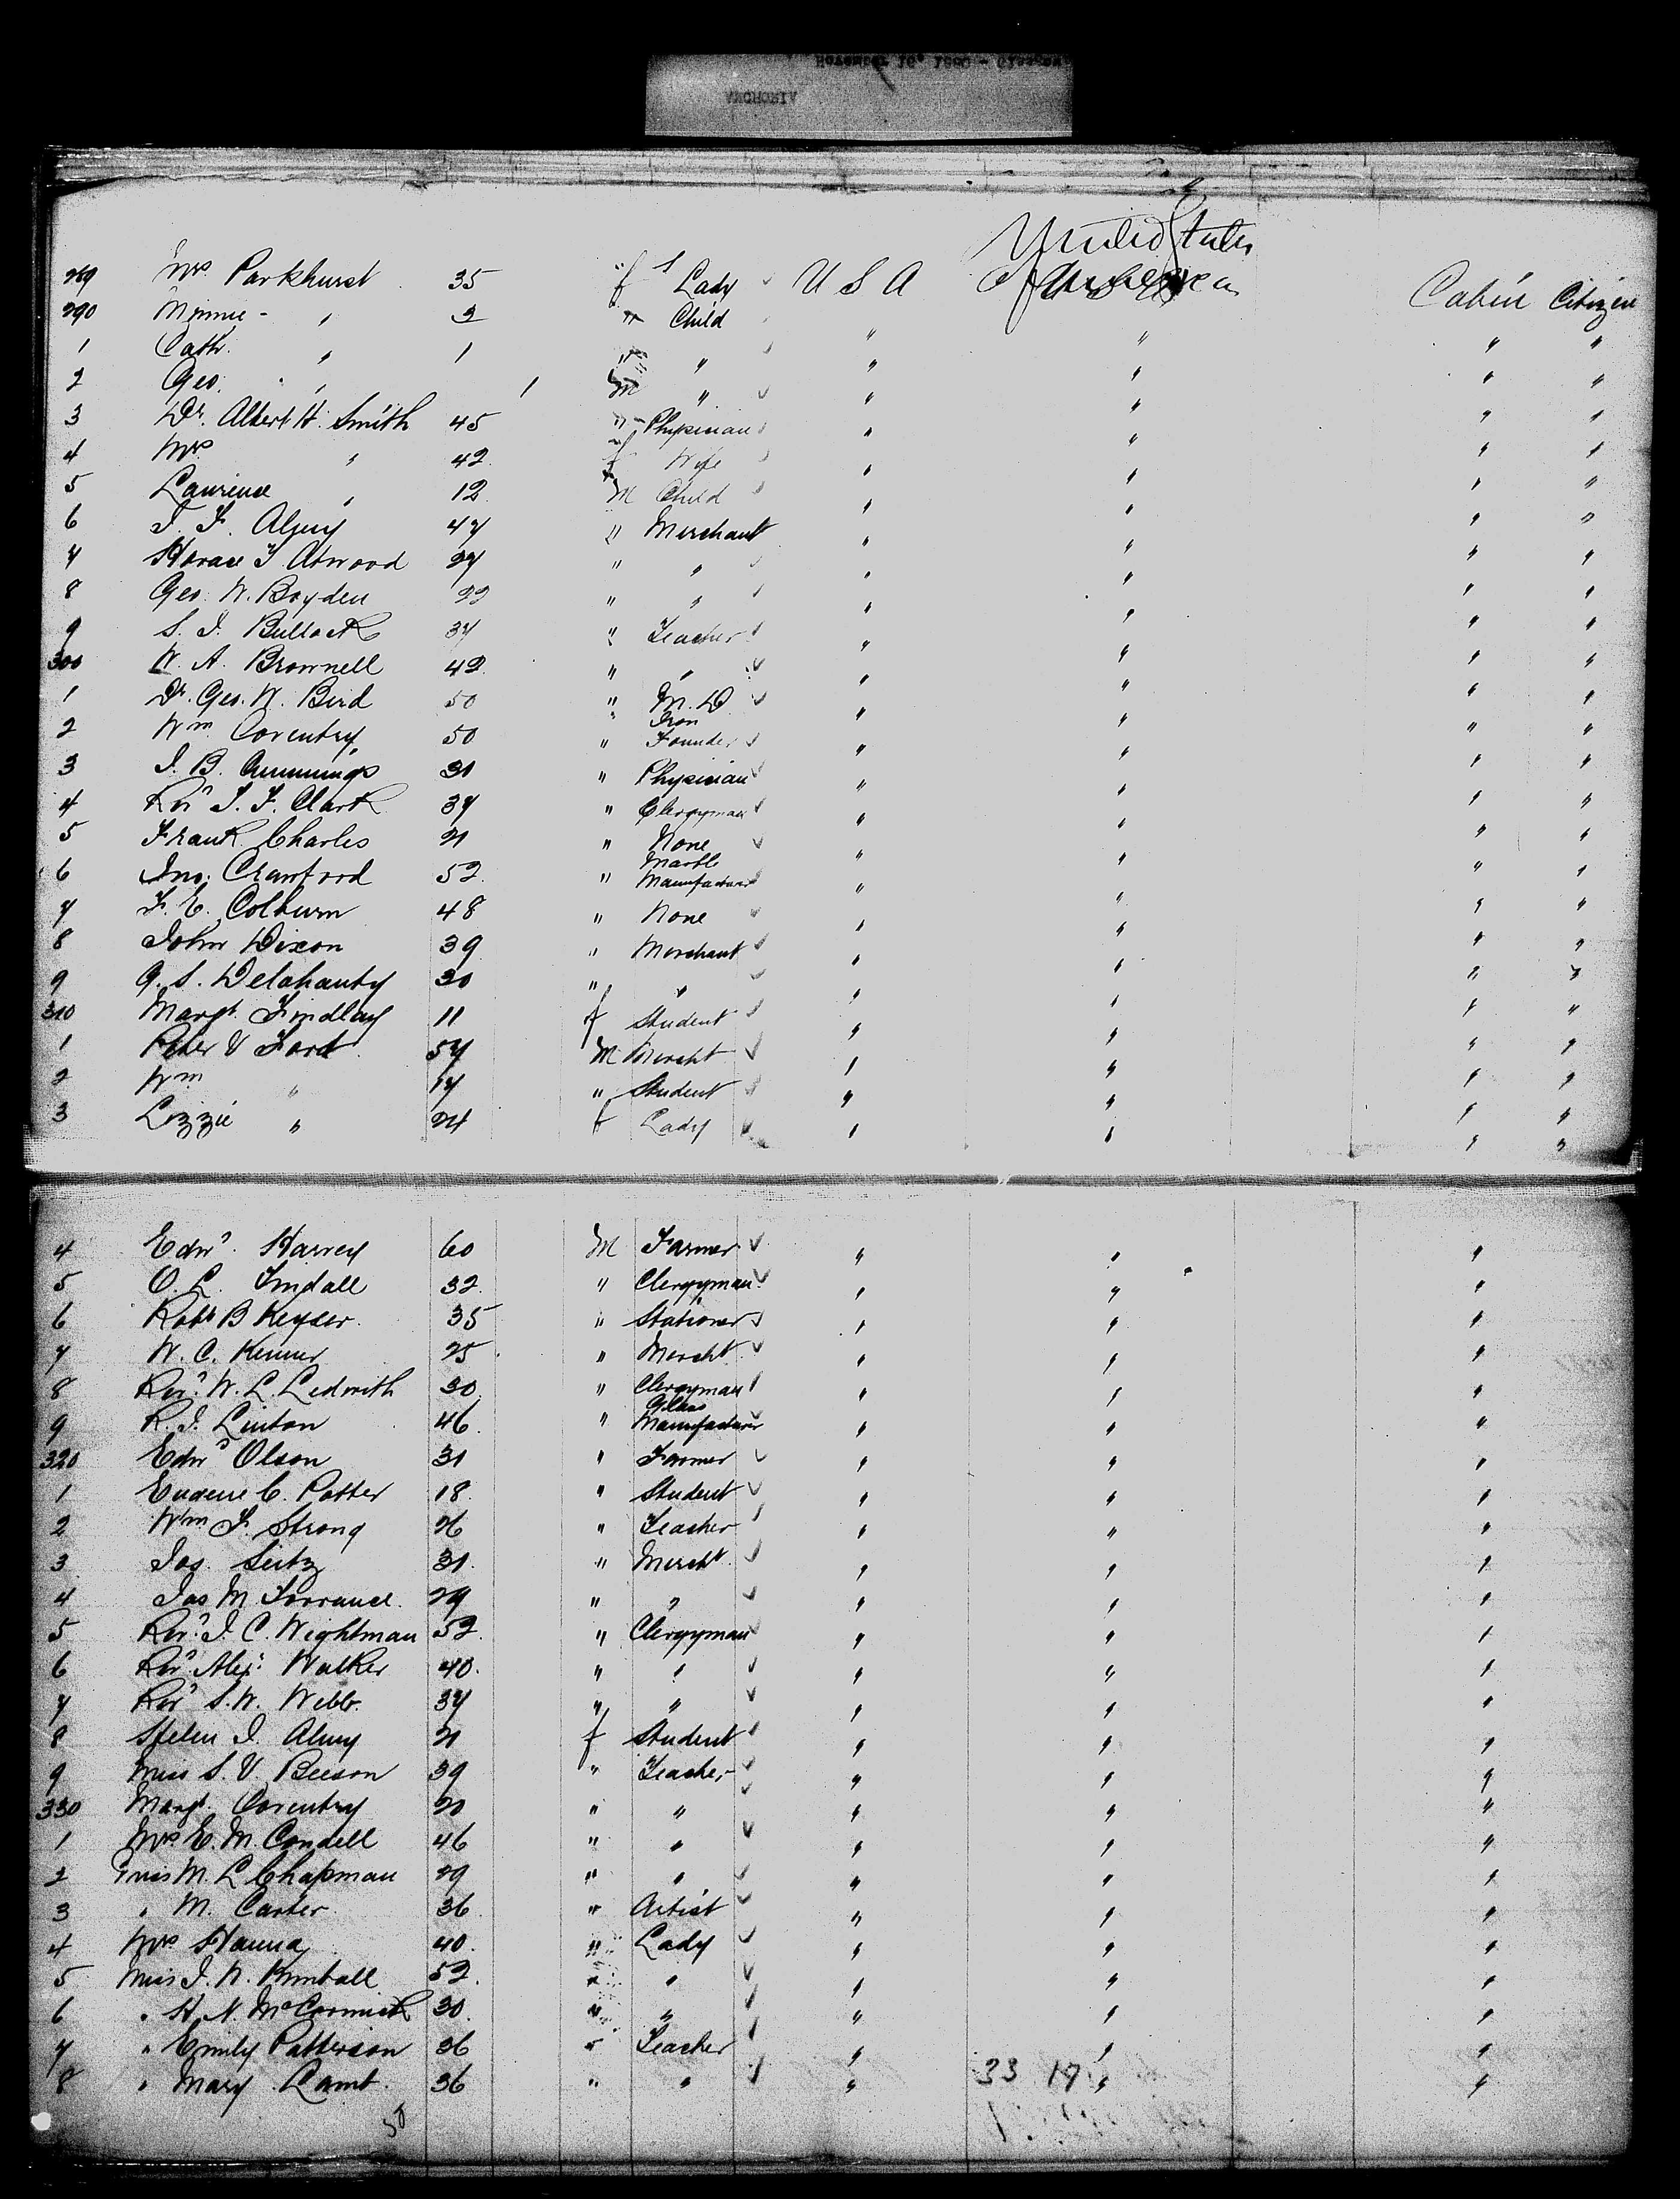 ANCHORIA
289 Mrs Parkhurst 35 f Lady U S A United States of America Cabin Citizen
290 Minnie - " 3 " Child " " " "
1 Cath. " 1 " " " " " "
2 Geo. " 1 M " " " " "
3 Dr. Albert H. Smith 45 " Physician " " " "
4 Mrs " 42 f Wife " " " "
5 Laurence " 12 M Child " " " "
6 T. F. Almy 47 " Merchant " " " "
7 Horace F. Atwood 27 " " " " " "
8 Geo. W. Boyden 22 " " " " " "
9 S. I. Bullock 37 " Teacher " " " "
300 W. A. Brownell 42 " " " " " "
1 Dr. Geo. W. Bird 50 " M. D " " " "
2 Wm Coventry 50 " Iron Founder " " " "
3 I. B. Cummings 31 " Physician " " " "
4 Revd S. F. Clark 37 " Clergyman " " " "
5 Frank Charles 21 " None " " " "
6 Jno. Crawford 52 " Marble Manufacturer " " " "
7 F. E. Colburn 48 " None " " " "
8 John Dixon 39 " Merchant " " " "
9 G. S. Delahanty 30 " " " " " "
310 Margt. Findlay 11 f Student " " " "
1 Peter V Ford 57 M Mercht " " " "
2 Wm " 17 " Student " " " "
3 Lizzie " 24 f Lady " " " "
4 Edwd. Harvey 60 M Farmer " " "
5 O. L. 32 " Clergyman " " "
6 Robt B Keyser 35 " Stationer " " "
7 W. C. Kenner 25 " Mercht " " "
8 Revd. W. L. Ledwith 30 " Clergyman " " "
9 R. I. Linton 46 " Glass Manufacturer " " "
320 Edwd Olson 31 " Farmer " " "
1 Eugene C. Potter 18 " Student " " "
2 Wm F. Strong 26 " Teacher " " "
3 Jos. Seitz 31 " Mercht " " "
4 Jas M Torrance 29 " " " " "
5 Revd. I. C. Wightman 52 " Clergyman " " "
6 Revd Alex. Walker 40 " " " " "
7 Revd S. W. Webb 37 " " " " "
8 Helen I. Almy 21 f Student " " "
9 Miss S. V. Beeson 39 " Teacher " " "
330 Margt. Coventry 20 " " " " "
1 Mrs E. M. Condell 46 " " " " "
2 Miss M. L Chapman 29 " " " " "
3 " M. Carter 36 " Artist " " "
4 Mrs Hanna 40 " Lady " " "
5 Miss I. N. Kimball 52 " " " " "
6 " H. N. McCormick 30 " " " " "
7 " Emily Patterson 36 " Teacher " " "
8 " Mary Lamt 36 " " " " "
33 17
50